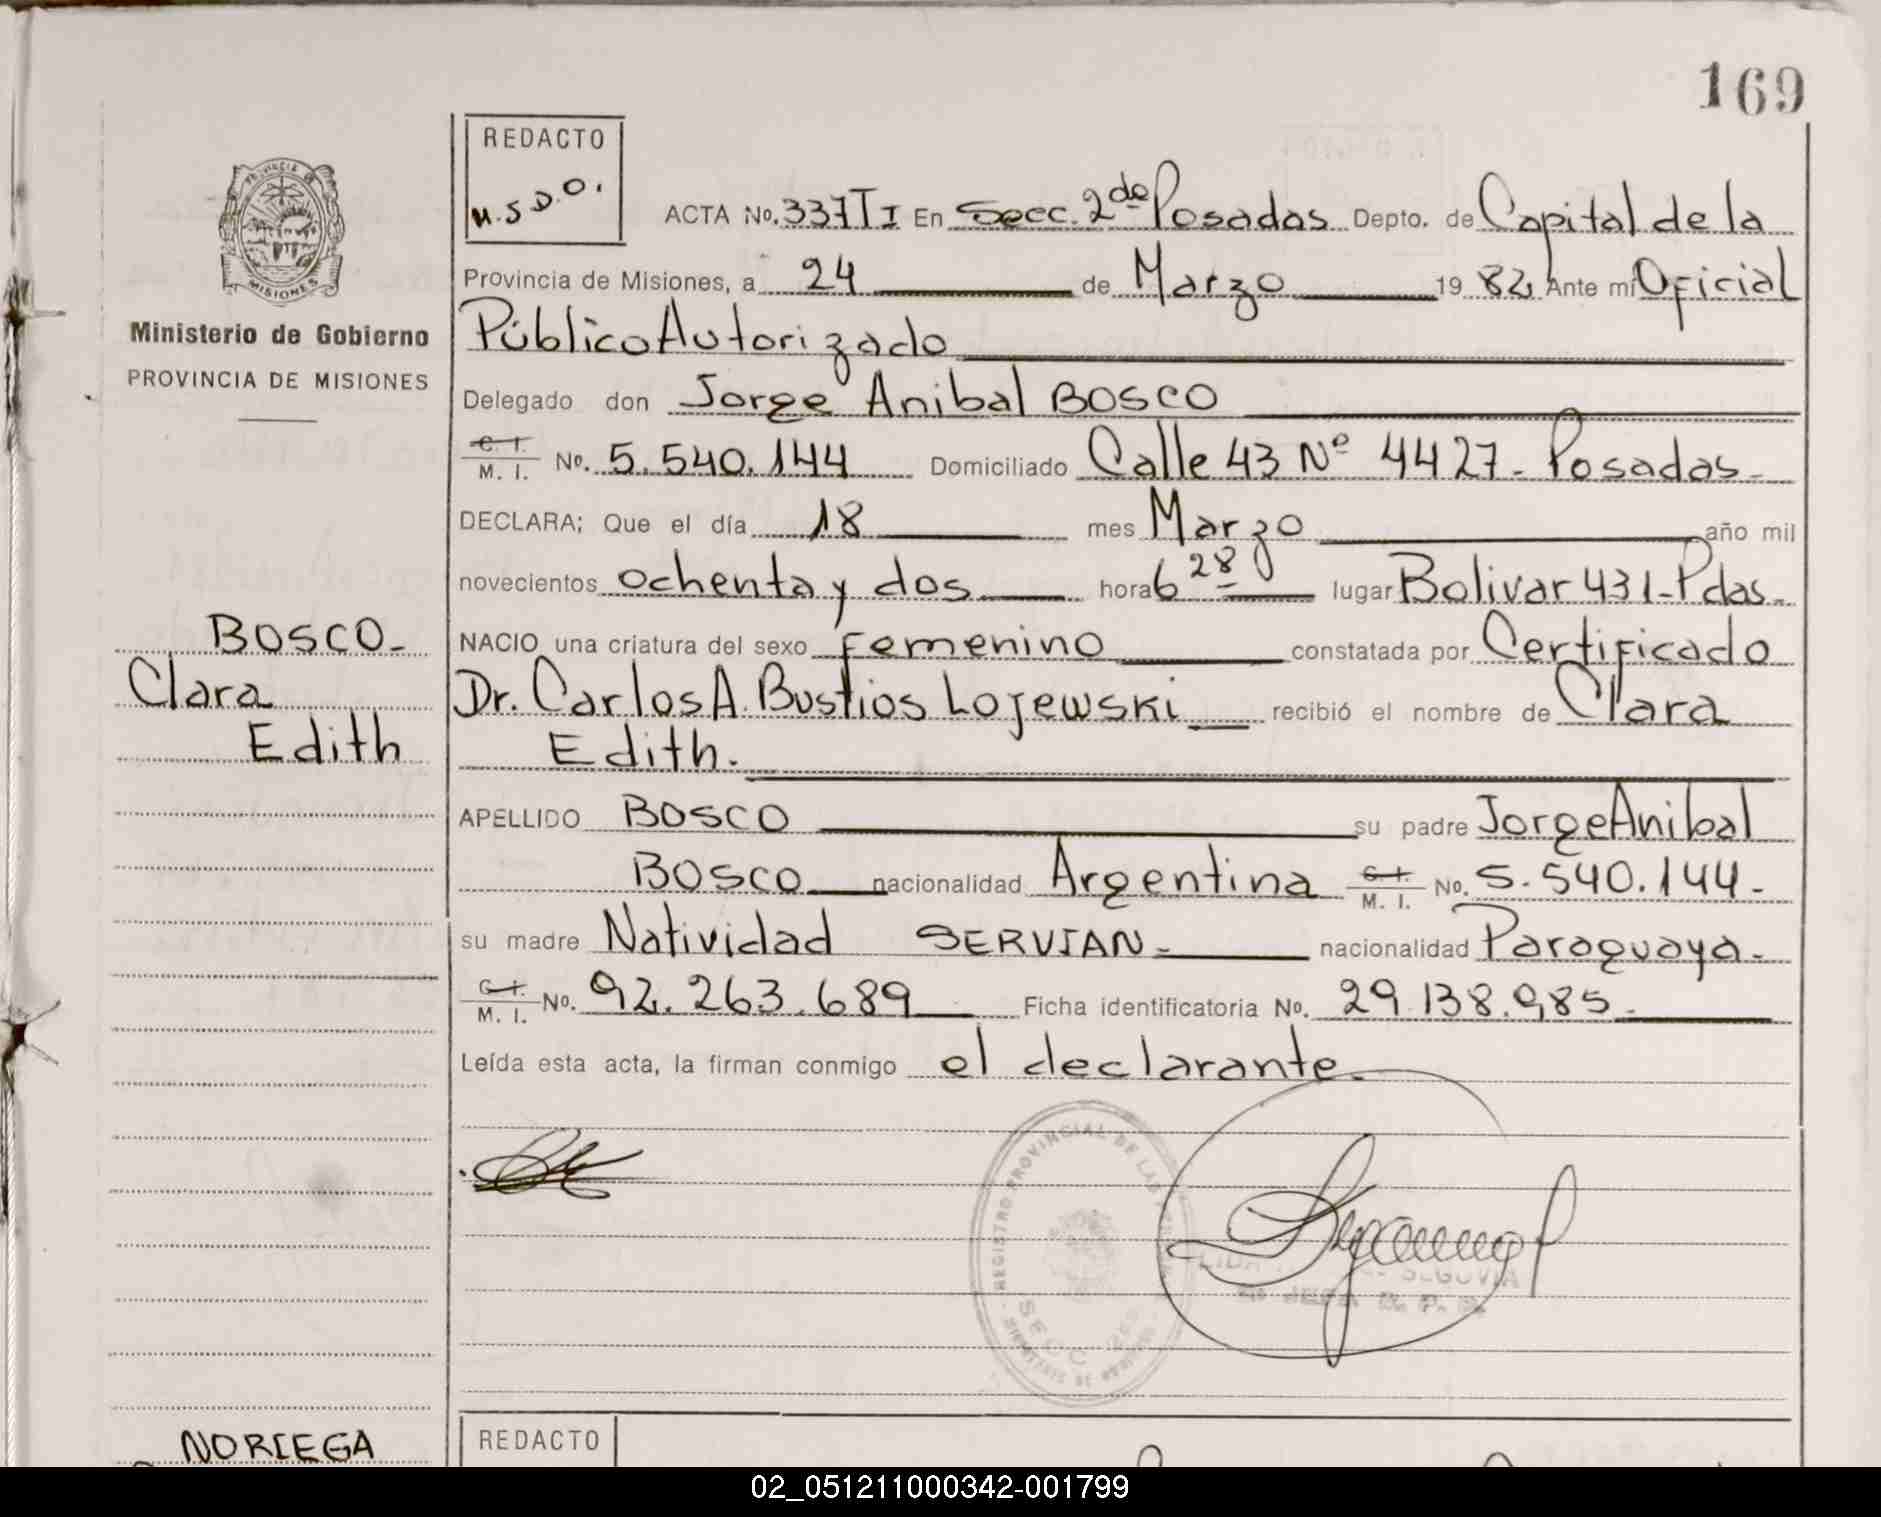 169
REDACTO
M.S.D.O.
PROVINCIA DE
MISIONES
Ministerio de Gobierno
PROVINCIA DE MISIONES
ACTA No. 337 T I En Secc. 2da Posadas Depto. de Capital de la
Provincia de Misiones, a 24 de Marzo 19 82, Ante mi Oficial
Público Autorizado
Delegado don Jorge Anibal BOSCO
C. I. / M. I. No. 5.540.144 Domiciliado Calle 43 Nº 4427 - Posadas -
DECLARA; Que el día 18 mes Marzo año mil
novecientos ochenta y dos hora 6 28 lugar Bolivar 431 - Pdas.
NACIO una criatura del sexo femenino constatada por Certificado
Dr. Carlos A. Bustios Lojewski recibió el nombre de Clara
Edith.
APELLIDO BOSCO su padre Jorge Anibal
BOSCO nacionalidad Argentina C. I. / M. I. No. 5.540.144 -
su madre Natividad SERVIAN - nacionalidad Paraguaya -
C. I. / M. I. No. 92.263.689 Ficha identificatoria No. 29.138.985
Leída esta acta, la firman conmigo el declarante.
BOSCO -
Clara
Edith
REGISTRO PROVINCIAL DE LAS
SECC
SEGOVIA
NORIEGA
REDACTO
02_051211000342-001799